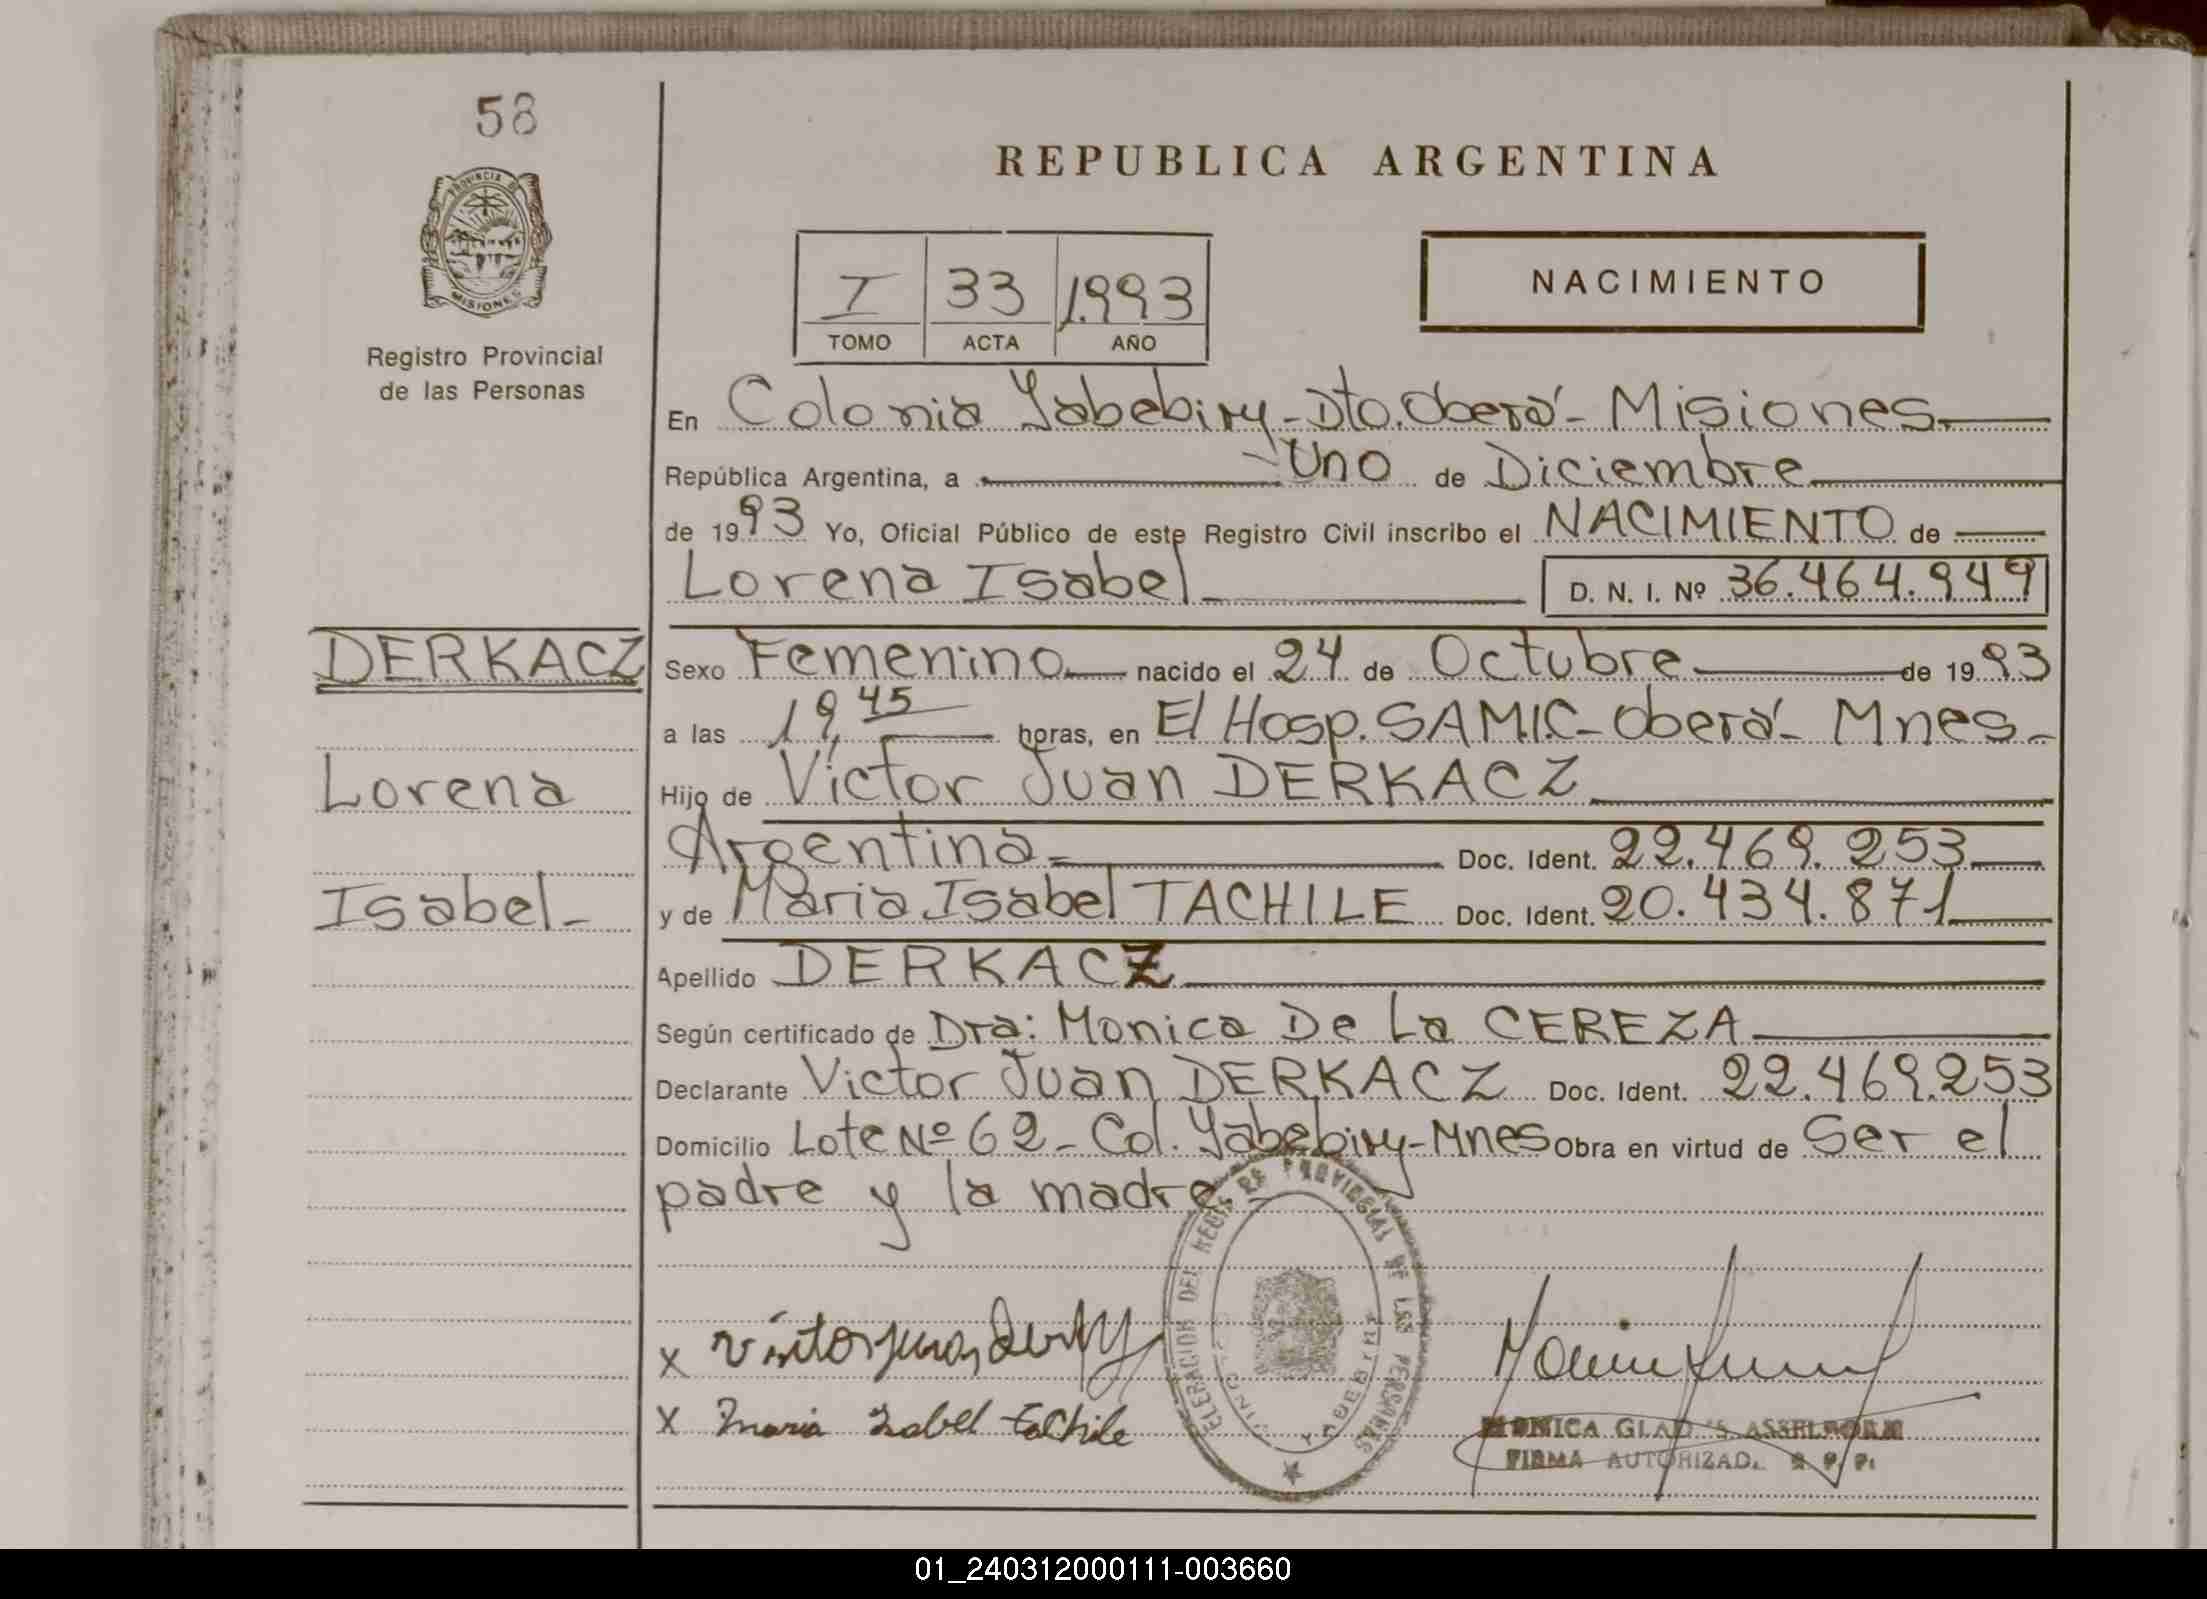 58
PROVINCIA DE
MISIONES
Registro Provincial
de las Personas
REPUBLICA ARGENTINA
I 33 1.993
TOMO ACTA AÑO
NACIMIENTO
En Colonia Yabebiry - Dto. Oberá - Misiones
República Argentina, a Uno de Diciembre
de 1993 Yo, Oficial Público de este Registro Civil inscribo el NACIMIENTO de
Lorena Isabel D. N. I. Nº 36.464.949
DERKACZ
Lorena
Isabel
Sexo Femenino nacido el 24 de Octubre de 1993
a las 19,45 horas, en El Hosp. SAMIC - Oberá - Mnes.
Hijo de Victor Juan DERKACZ
Argentina Doc. Ident. 22.469.253
y de Maria Isabel TACHILE Doc. Ident. 20.434.871
Apellido DERKACZ
Según certificado de Dra: Monica De La CEREZA
Declarante Victor Juan DERKACZ Doc. Ident. 22.469.253
Domicilio Lote Nº 62 - Col. Yabebiry - Mnes Obra en virtud de Ser el
padre y la madre
DEL REGISTRO PROVINCIAL DE LAS PERSONAS
X Victor Juan
X Maria Isabel Tachile
MONICA GLADYS ASSELBORN
FIRMA AUTORIZAD. R. P. P.
01_240312000111-003660